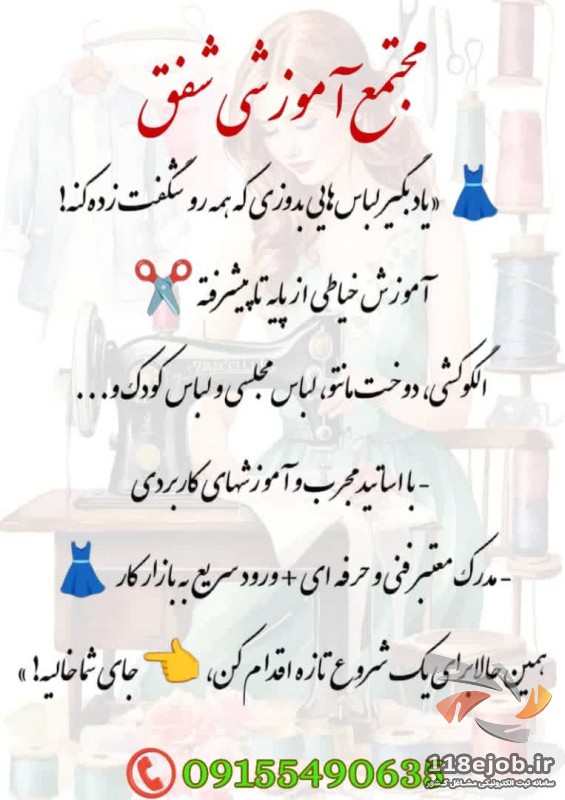 مجتمع آموزشی شفق
«یاد بگیر لباس هایی بدوزی که همه رو شگفت زده کنه!
آموزش خیاطی از پایه تا پیشرفته
الگوکشی، دوخت مانتو، لباس مجلسی و لباس کودک و...
- با اساتید مجرب و آموزشهای کاربردی
- مدرک معتبر فنی و حرفه ای + ورود سریع به بازار کار
همین حالا برای یک شروع تازه اقدام کن، جای شما خالیه! »
118ejob.ir
سامانه ثبت الکترونیکی مشاغل کشور
09155490638